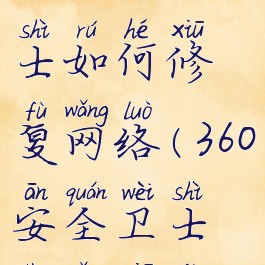 shì rú hé xiū
士如何修
fù wǎng luò
复网络(360
ān quán wèi shì
安全卫士